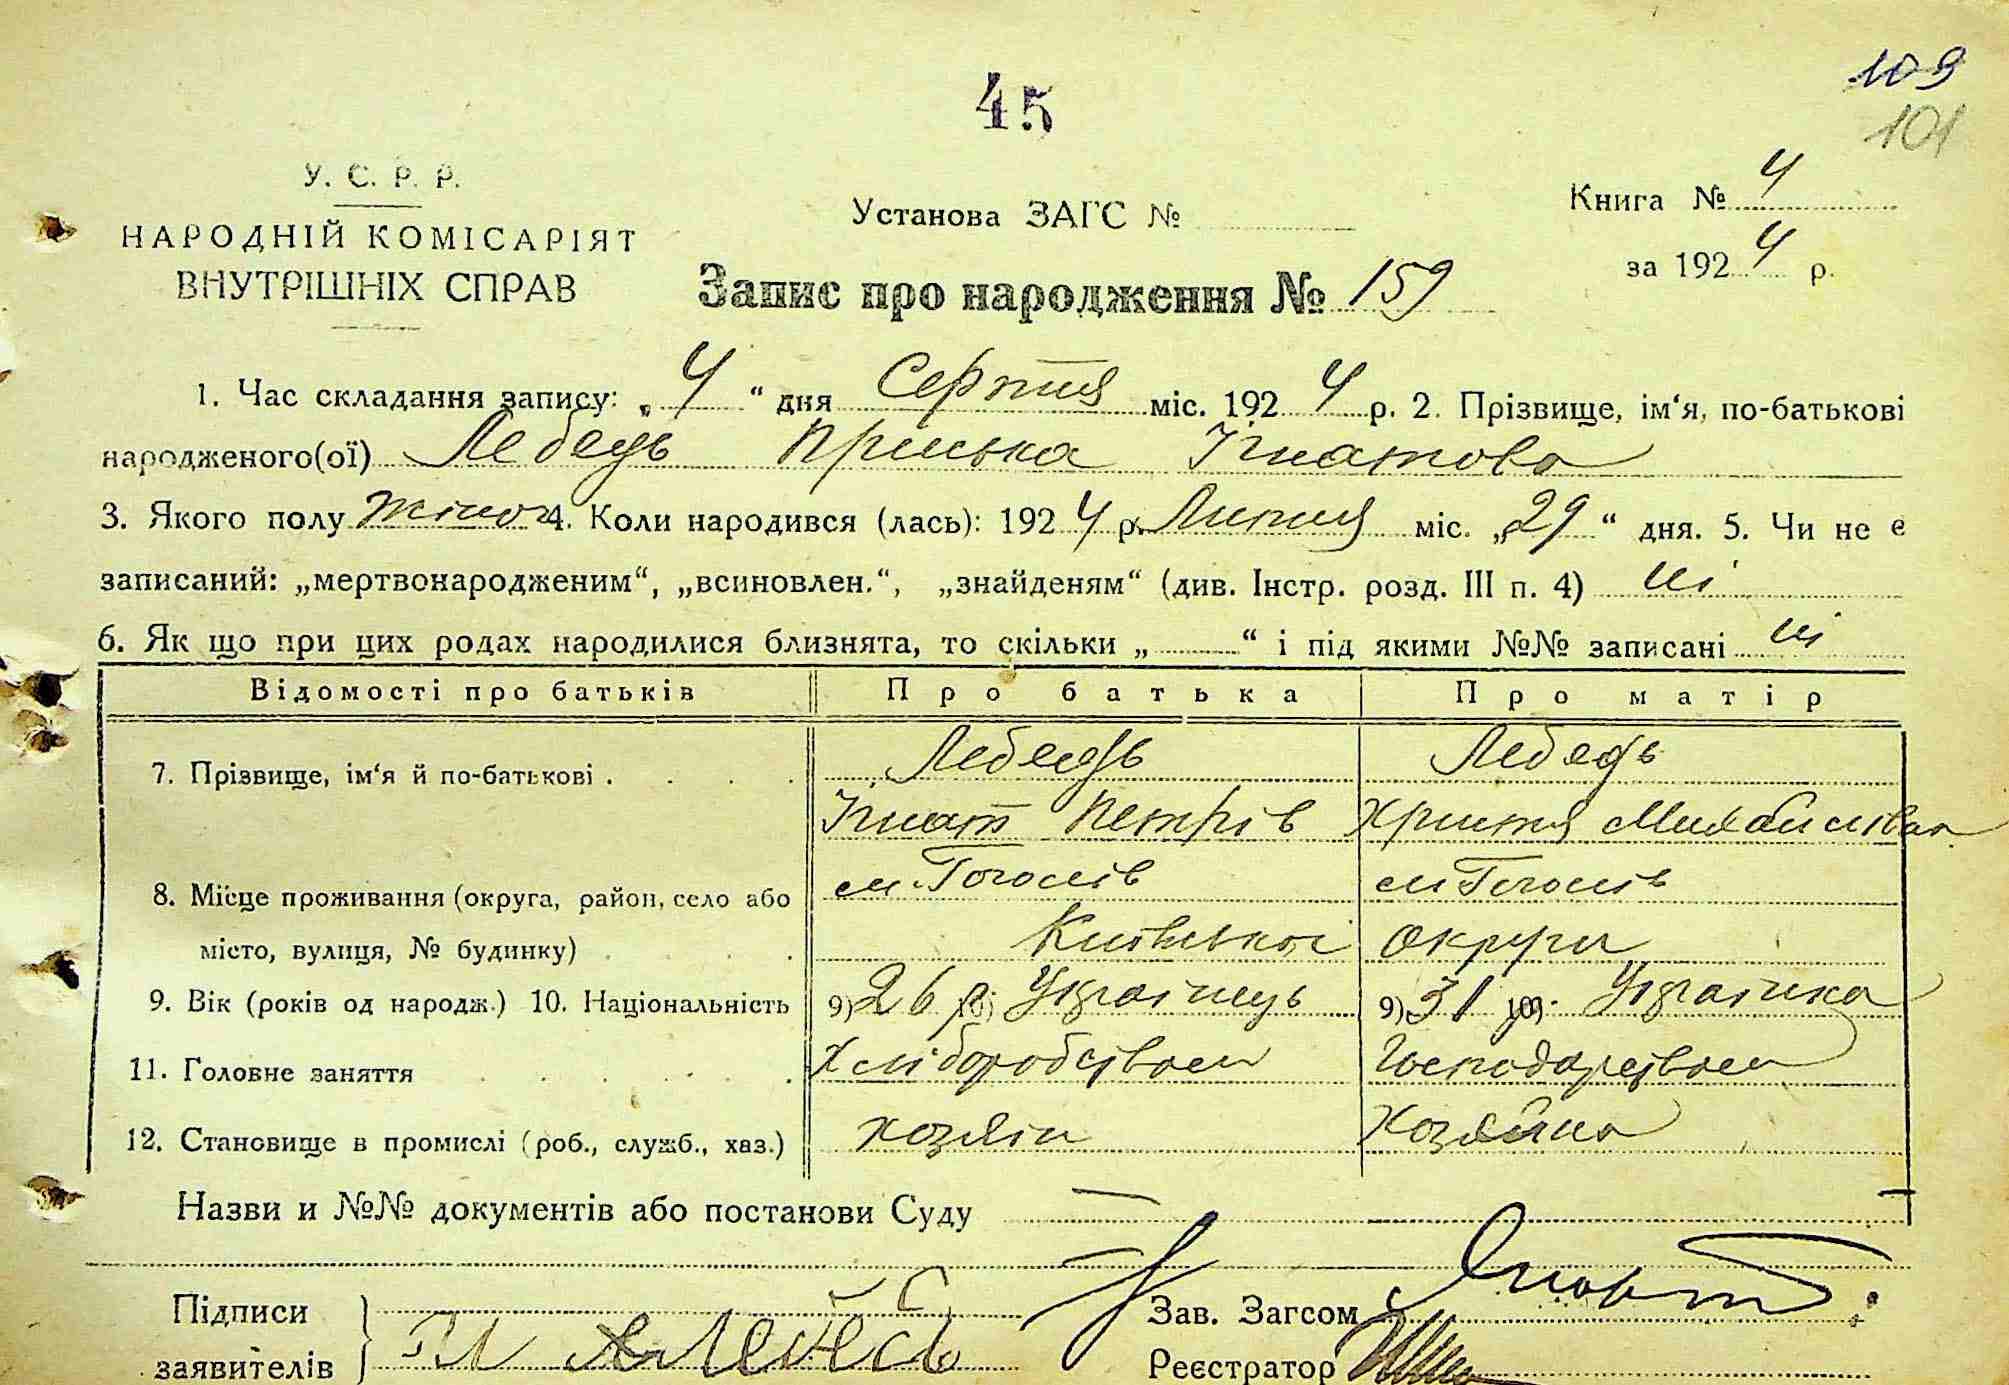 109
45
101
У. С. Р. Р.
НАРОДНІЙ КОМІСАРІЯТ
ВНУТРІШНІХ СПРАВ
Установа ЗАГС №
Книга № 4
за 1924 р.
Запис про народження № 159
1. Час складання запису: „4“ дня Серпня міс. 1924 р. 2. Прізвище, ім‘я, по-батькові
народженого(ої) Лебедь Приська Ігнатова
3. Якого полу жіноч 4. Коли народився (лась): 1924 р. Липня міс. „29“ дня. 5. Чи не є
записаний: „мертвонародженим“, „всиновлен.“, „знайденям“ (див. Інстр. розд. III п. 4) ні
6. Як що при цих родах народилися близнята, то скільки „ “ і під якими №№ записані ні
Відомості про батьків Про батька Про матір
7. Прізвище, ім‘я й по-батькові . . . . Лебедь Лебедь
Ігнат Петрів Христя Михайлівна
8. Місце проживання (округа, район, село або м. Гоголів м Гоголів
місто, вулиця, № будинку) . . . . Київської Округи
9. Вік (років од народж.) 10. Національність 9) 26 р 10) Українець 9) 31 р. 10) Українка
11. Головне заняття . . . . . Хліборобством Господарством
12. Становище в промислі (роб., служб., хаз.) хозяін Хозяйна
Назви и №№ документів або постанови Суду
Підписи
заявителів
Зав. Загсом
Реєстратор